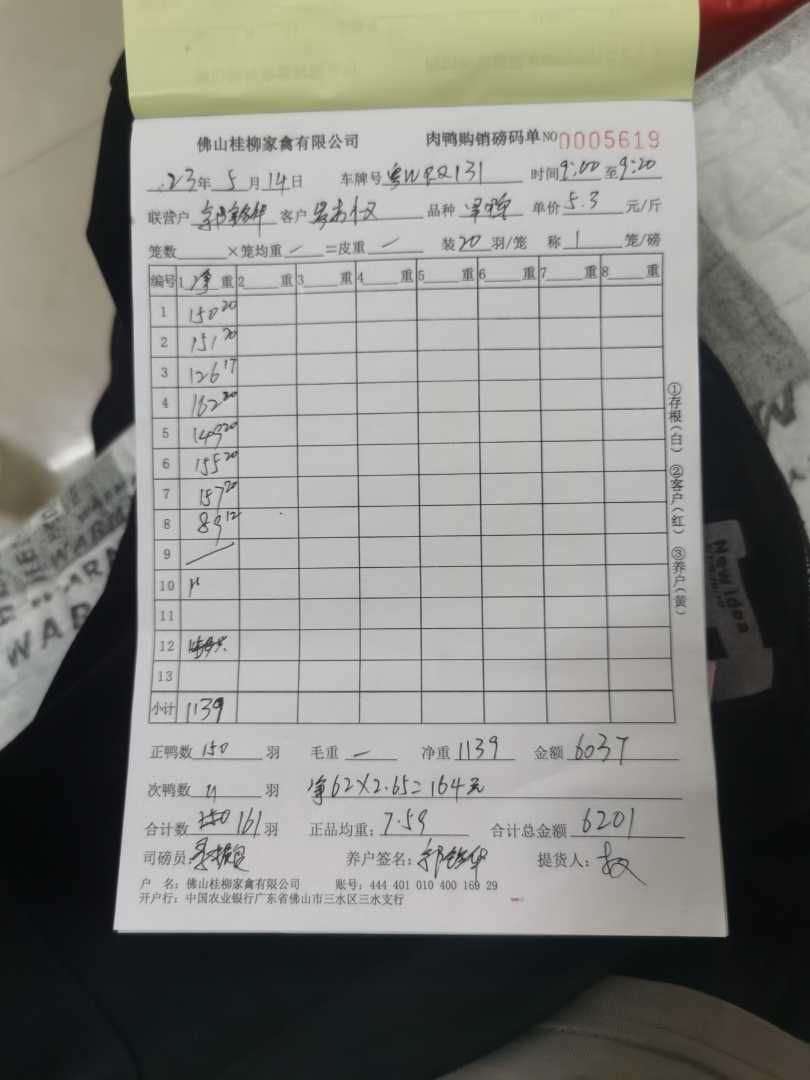 佛山桂柳家禽有限公司 肉鸭购销磅码单 NO 0005619
23年 5月 14日 车牌号 时间 9:00 至 9:20
联营户 客户 品种 单价 5.3 元/斤
笼数 ×笼均重 — =皮重 — 装 20 羽/笼 称 1 笼/磅
编号 1 净 重 2 重 3 重 4 重 5 重 6 重 7 重 8 重
1 150 20
2 151 20
3 126 17
4 162 20
5 149 20
6 155 20
7 157 20
8 89 12
9 —
10
11
12
13
小计 1139
正鸭数 150 羽 毛重 — 净重 1139 金额 6037
次鸭数 11 羽 净62×2.65=164元
合计数 161 羽 正品均重: 7.59 合计总金额 6201
司磅员: 养户签名: 提货人:
户 名: 佛山桂柳家禽有限公司 账号: 444 401 010 400 169 29
开户行: 中国农业银行广东省佛山市三水区三水支行
①存根(白) ②客户(红) ③养户(黄)
New idea
WARM
WARN
WAR